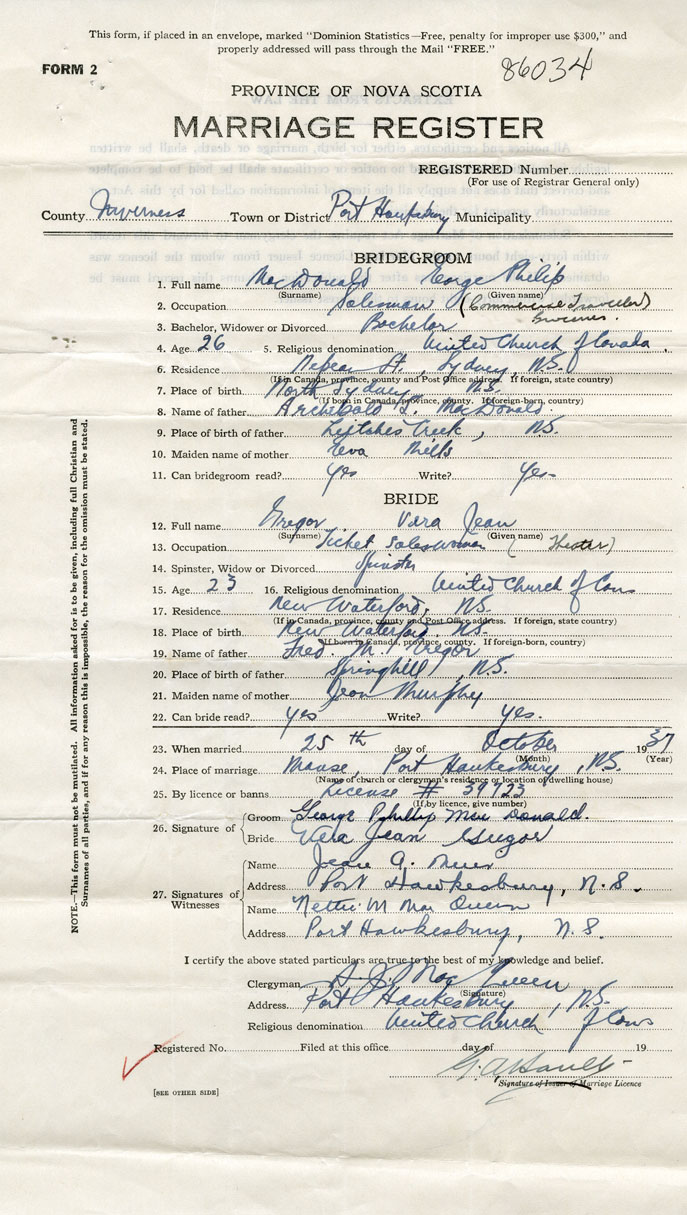 This form, if placed in an envelope, marked "Dominion Statistics—Free, penalty for improper use $300," and
properly addressed will pass through the Mail "FREE."
FORM 2
86034
PROVINCE OF NOVA SCOTIA
MARRIAGE REGISTER
REGISTERED Number
(For use of Registrar General only)
County Inverness Town or District Port Hawkesbury Municipality
BRIDEGROOM
1. Full name MacDonald George Philip
(Surname) (Given name)
2. Occupation Salesman (Commercial Traveller)
3. Bachelor, Widower or Divorced Bachelor
4. Age 26 5. Religious denomination United Church of Canada
6. Residence Nepean St., Sydney, N.S.
(If in Canada, province, county and Post Office address. If foreign, state country)
7. Place of birth North Sydney N.S.
(If born in Canada, province, county. If foreign-born, country)
8. Name of father Archibald MacDonald
9. Place of birth of father Leitches Creek, N.S.
10. Maiden name of mother Eva Mills
11. Can bridegroom read? Yes Write? Yes
BRIDE
12. Full name Gregor Vera Jean
(Surname) (Given name)
13. Occupation Ticket Saleswoman (Theater)
14. Spinster, Widow or Divorced Spinster
15. Age 23 16. Religious denomination United Church of Can
17. Residence New Waterford, N.S.
(If in Canada, province, county and Post Office address. If foreign, state country)
18. Place of birth New Waterford. N.S.
(If born in Canada, province, county. If foreign-born, country)
19. Name of father Fred. M. Gregor
20. Place of birth of father Springhill, N.S.
21. Maiden name of mother Jean Murphy
22. Can bride read? Yes Write? Yes.
23. When married 25th day of October 1937
(Month) (Year)
24. Place of marriage Manse, Port Hawkesbury, N.S.
(Name of church or clergyman's residence or location of dwelling house)
25. By licence or banns License # 39723
(If by licence, give number)
26. Signature of
Groom George Phillip Mac Donald.
Bride Vera Jean Gregor
27. Signatures of Witnesses
Name Jean A.
Address Port Hawkesbury, N.S.
Name Nettie M Mac Queen
Address Port Hawkesbury, N.S.
I certify the above stated particulars are true to the best of my knowledge and belief.
Clergyman A. J. MacQueen
(Signature)
Address Port Hawkesbury, N.S.
Religious denomination United Church of Can
Registered No. Filed at this office day of 19
Signature of Issuer of Marriage Licence
[SEE OTHER SIDE]
NOTE.—This form must not be mutilated. All information asked for is to be given, including full Christian and
Surnames of all parties, and if for any reason this is impossible, the reason for the omission must be stated.